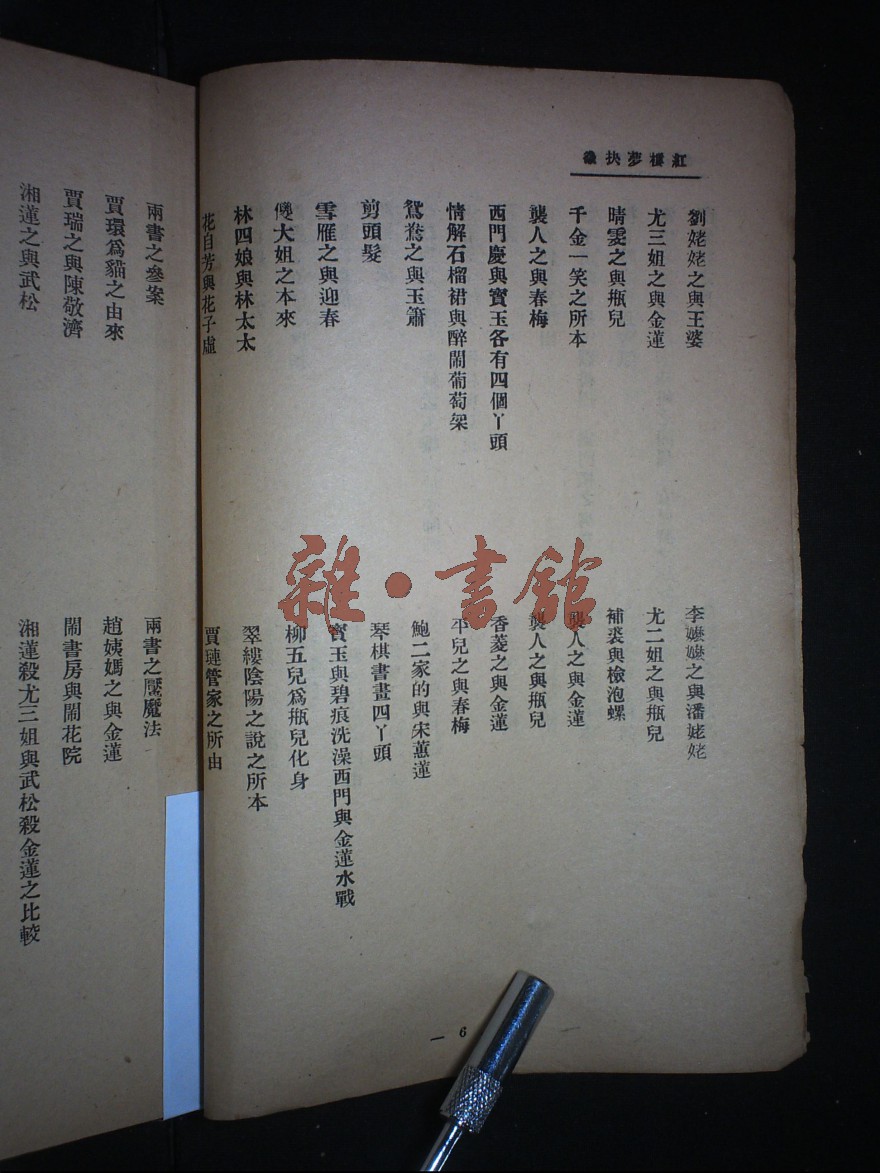 紅樓夢抉微
劉姥姥之與王婆
李嬤嬤之與潘姥姥
尤三姐之與金蓮
尤二姐之與瓶兒
晴雯之與瓶兒
補裘與檢泡螺
千金一笑之所本
襲人之與金蓮
襲人之與春梅
襲人之與瓶兒
西門慶與寶玉各有四個丫頭
香菱之與金蓮
情解石榴裙與醉鬧葡萄架
平兒之與春梅
鴛鴦之與玉簫
鮑二家的與宋蕙蓮
剪頭髮
琴棋書畫四丫頭
雪雁之與迎春
寶玉與碧痕洗澡西門與金蓮水戰
傻大姐之本來
柳五兒爲瓶兒化身
林四娘與林太太
翠縷陰陽之說之所本
花自芳與花子虛
賈璉管家之所由
6
兩書之參案
兩書之魘魔法
賈環爲貓之由來
趙姨媽之與金蓮
賈瑞之與陳敬濟
鬧書房與鬧花院
湘蓮之與武松
湘蓮殺尤三姐與武松殺金蓮之比較
雜·書館